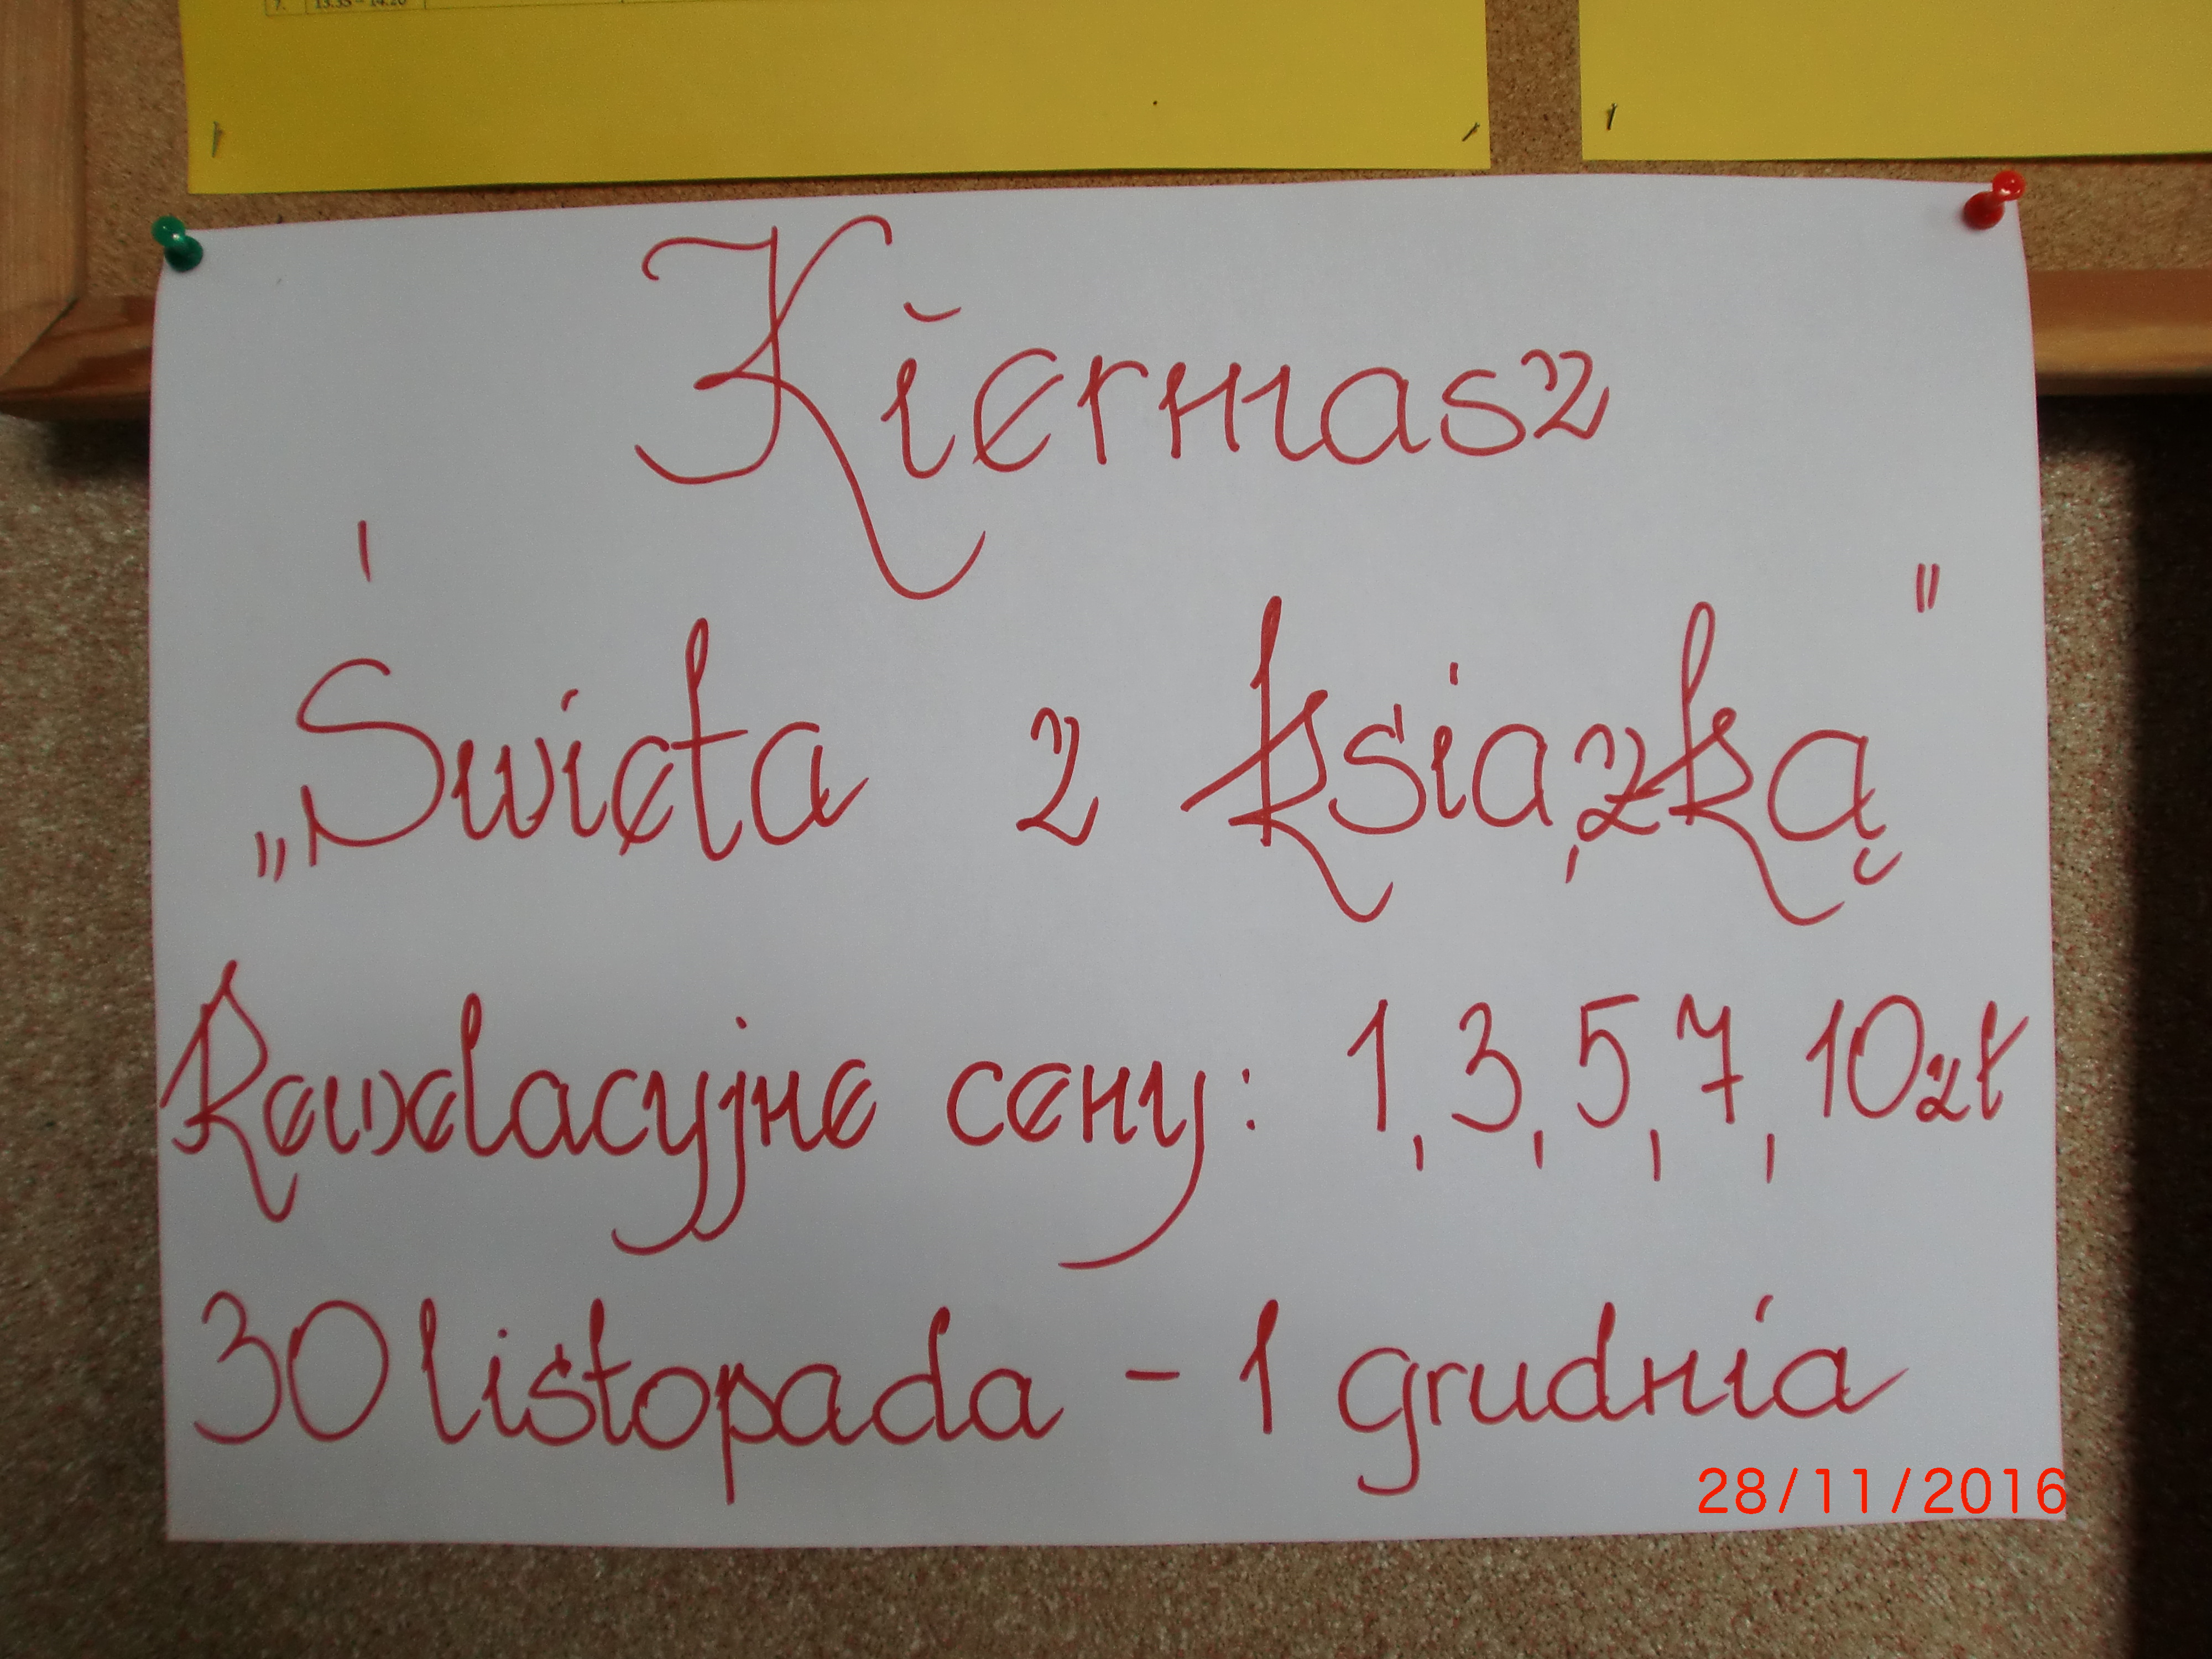 7. 13.35 – 14.20
Kiermasz
„Święta z książką"
Rewelacyjne ceny: 1, 3, 5, 7, 10zł
30 listopada - 1 grudnia
28/11/2016